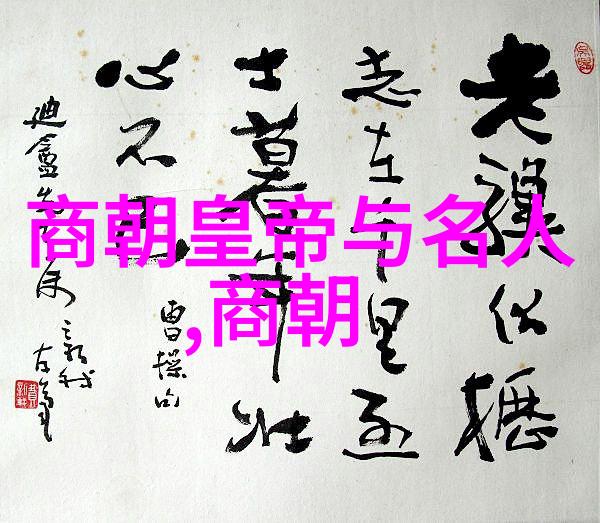 老驥伏櫪
志在千里烈
士暮年壮
心不已
曹操句
商朝皇帝与名人
,商朝